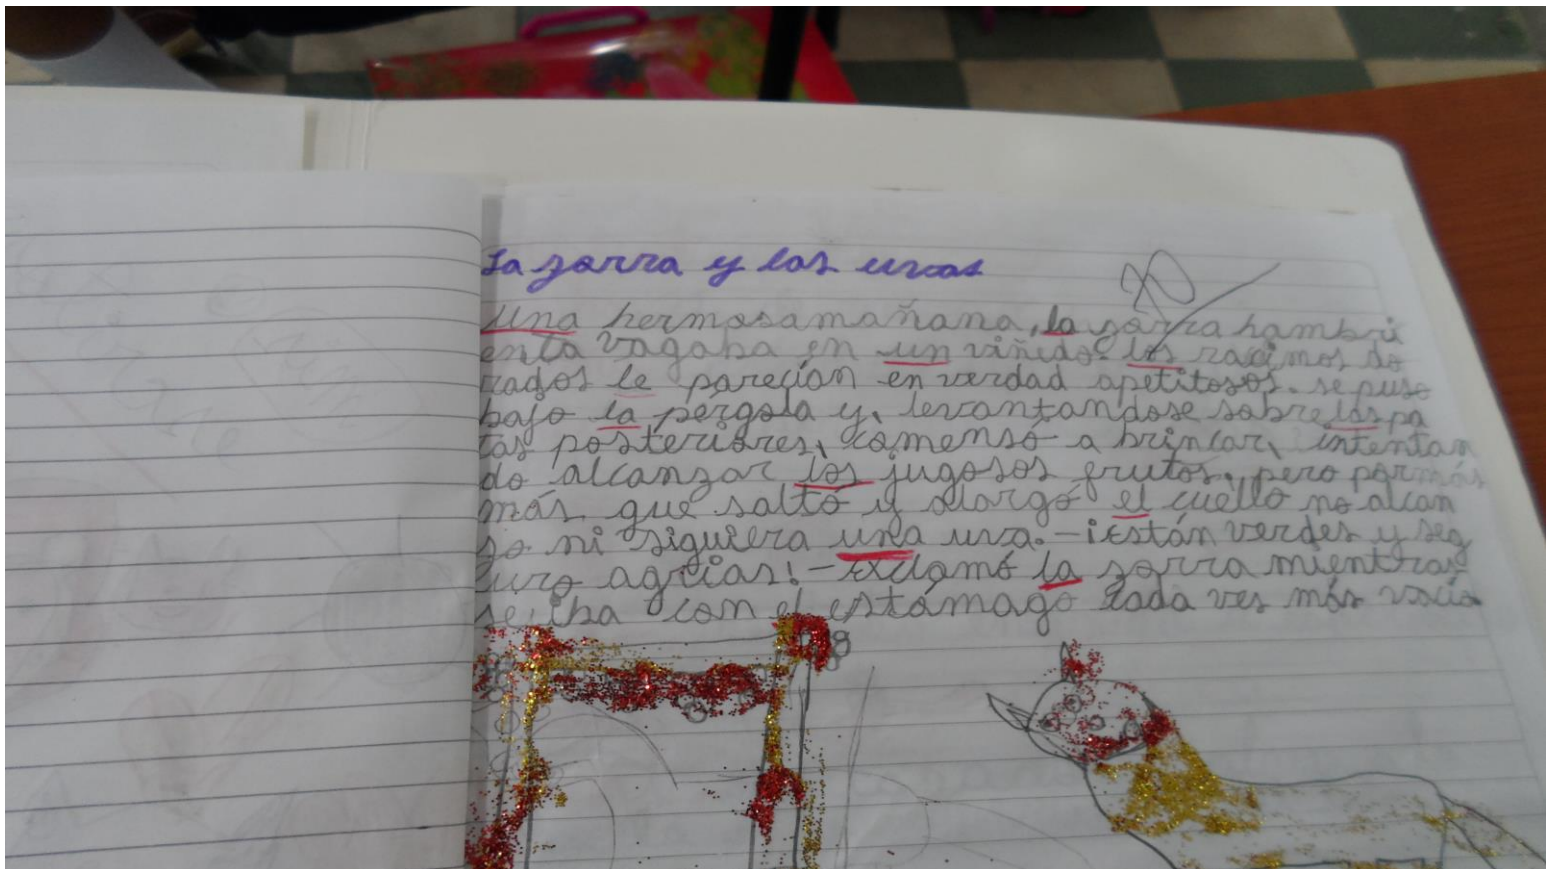 La zorra y las uvas
Una hermosa mañana, la zorra hambri
enta vagaba en un viñedo. los racimos do
rados le parecían en verdad apetitosos. se puso
bajo la pérgola y, levantandose sobre las pa
tas posteriores, comensó a brincar, intentan
do alcanzar los jugosos frutos, pero por más
más que saltó y alargó el cuello no alcan
so ni siquiera una uva. - ¡Están verdes y seg
uro agrias! - Exclamó la zorra mientras
se iba con el estómago cada ves más vacío